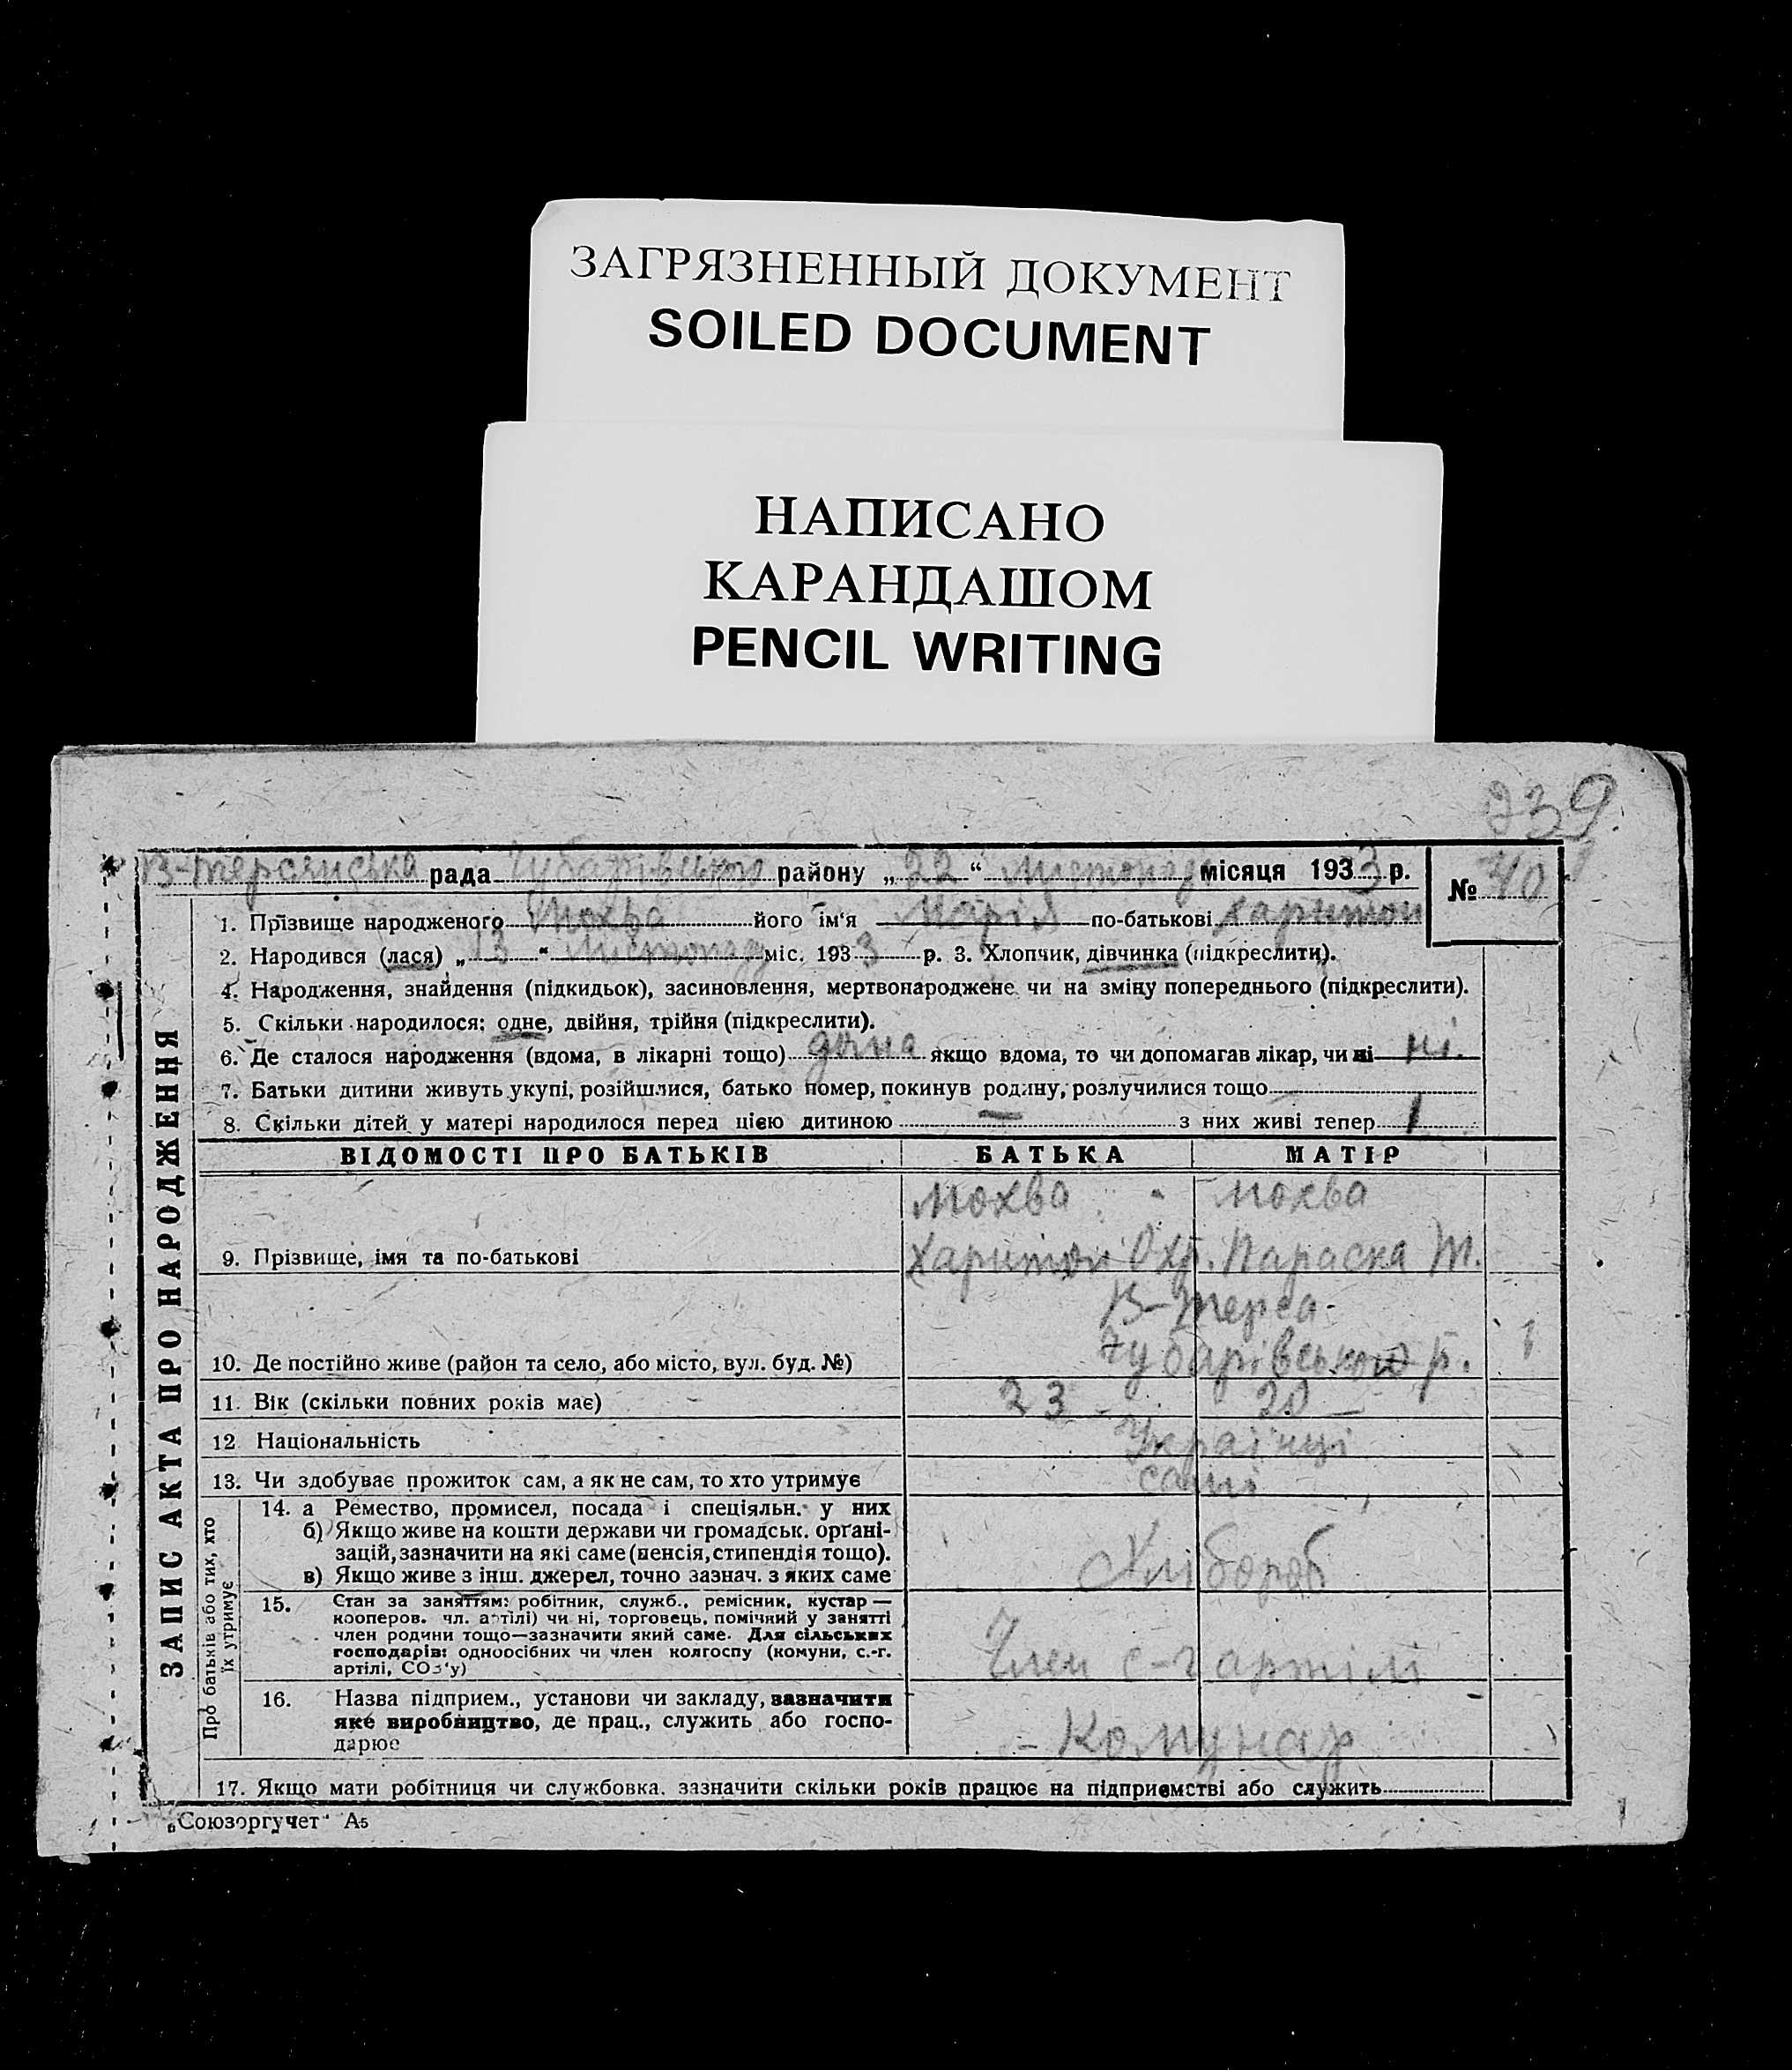 ЗАГРЯЗНЕННЫЙ ДОКУМЕНТ
SOILED DOCUMENT
НАПИСАНО
КАРАНДАШОМ
PENCIL WRITING
239
В-Терсянська рада Чубарівського району „22“ Листопада місяця 1933 р. № 40
1. Прізвище народженого Мохва його ім‘я Марія по-батькові Харитон
2. Народився (лася) „13“ Листопада міс. 1933 р. 3. Хлопчик, дівчинка (підкреслити).
4. Народження, знайдення (підкидьок), засиновлення, мертвонароджене чи на зміну попереднього (підкреслити).
5. Скільки народилося: одне, двійня, трійня (підкреслити).
6. Де сталося народження (вдома, в лікарні тощо) дома якщо вдома, то чи допомагав лікар, чи ні ні.
7. Батьки дитини живуть укупі, розійшлися, батько помер, покинув родину, розлучилися тощо
8. Скільки дітей у матері народилося перед цією дитиною — з них живі тепер 1
ЗАПИС АКТА ПРО НАРОДЖЕННЯ
ВІДОМОСТІ ПРО БАТЬКІВ БАТЬКА МАТІР
Мохва Мохва
9. Прізвище, імя та по-батькові Харитон Охр. Параска Т.
В-Терса
10. Де постійно живе (район та село, або місто, вул. буд. №) Чубарівського р. 1
11. Вік (скільки повних років має) 23 - 20 —
12 Національність Українці
13. Чи здобуває прожиток сам, а як не сам, то хто утримує самі
Про батьків або тих, хто їх утримує
14. а Ремество, промисел, посада і спеціяльн. у них
б) Якщо живе на кошти держави чи громадськ. орґані-
зацій, зазначити на які саме (пенсія, стипендія тощо).
в) Якщо живе з інш. джерел, точно зазнач. з яких саме
Хлібороб
15. Стан за заняттям: робітник, служб., ремісник, кустар —
кооперов. чл. артілі) чи ні, торговець, помічний у занятті
член родини тощо—зазначити який саме. Для сільських
господарів: одноосібних чи член колгоспу (комуни, с.-г.
артілі, СОЗ‘у)
Член с-г артілі
16. Назва підприєм., установи чи закладу, зазначити
яке виробництво, де прац., служить або госпо-
дарює
- Комунар
17. Якщо мати робітниця чи службовка. зазначити скільки років працює на підприємстві або служить
„Союзоргучет“ А5